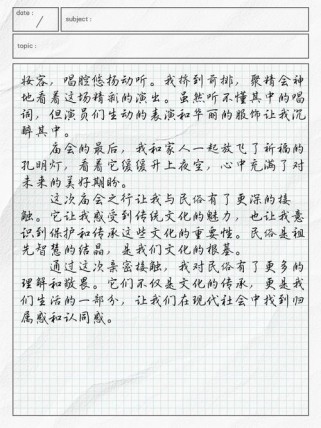 date:
subject:
topic:
按容，唱腔悠扬动听。我挤到前排，聚精会神
地看着这场精彩的演出。虽然听不懂其中的唱
词，但演员们生动的表演和华丽的服饰让我沉
醉其中。
庙会的最后，我和家人一起放飞了祈福的
孔明灯，看着它缓缓升上夜空，心中充满了对
未来的美好期盼。
这次庙会之行让我与民俗有了更深的接
触。它让我感受到传统文化的魅力，也让我意
识到保护和传承这些文化的重要性。民俗是祖
先智慧的结晶，是我们文化的根基。
通过这次亲密接触，我对民俗有了更多的
理解和敬畏。它们不仅是文化的传承，更是我
们生活的一部分，让我们在现代社会中找到归
属感和认同感。